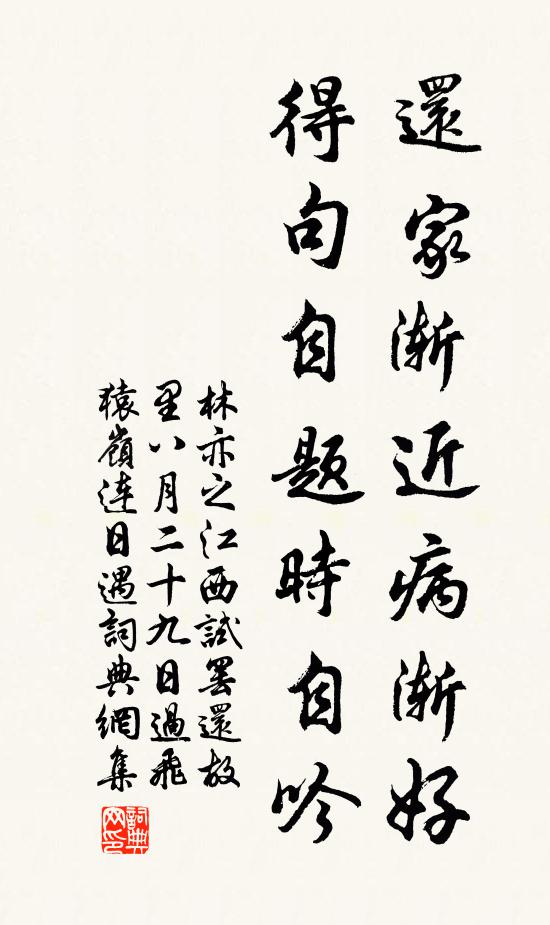 還家渐近病渐好
得句自题時自吟
林亦之江西試罢還故
里八月二十九日過飛
猿嶺连日遇詞典網集
詞典网印